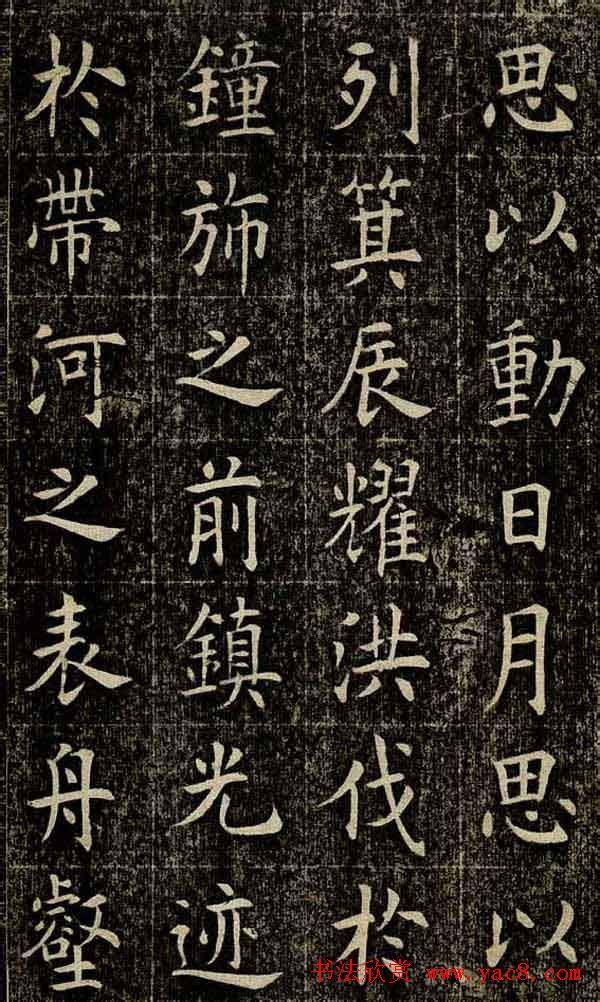 思以動日月思以
列箕辰耀洪伐於
鐘斾之前鎮光迹
於帶河之表舟壑
书法欣赏 www.yac8.com